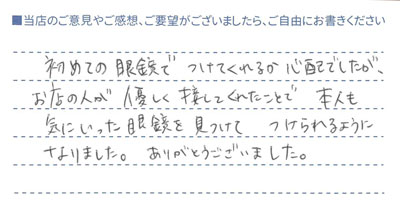 ■当店のご意見やご感想、ご要望がございましたら、ご自由にお書きください
初めての眼鏡で つけてくれるか 心配でしたが、
お店の人が 優しく 接してくれたことで 本人も
気にいった眼鏡を 見つけて つけられるように
なりました。 ありがとうございました。